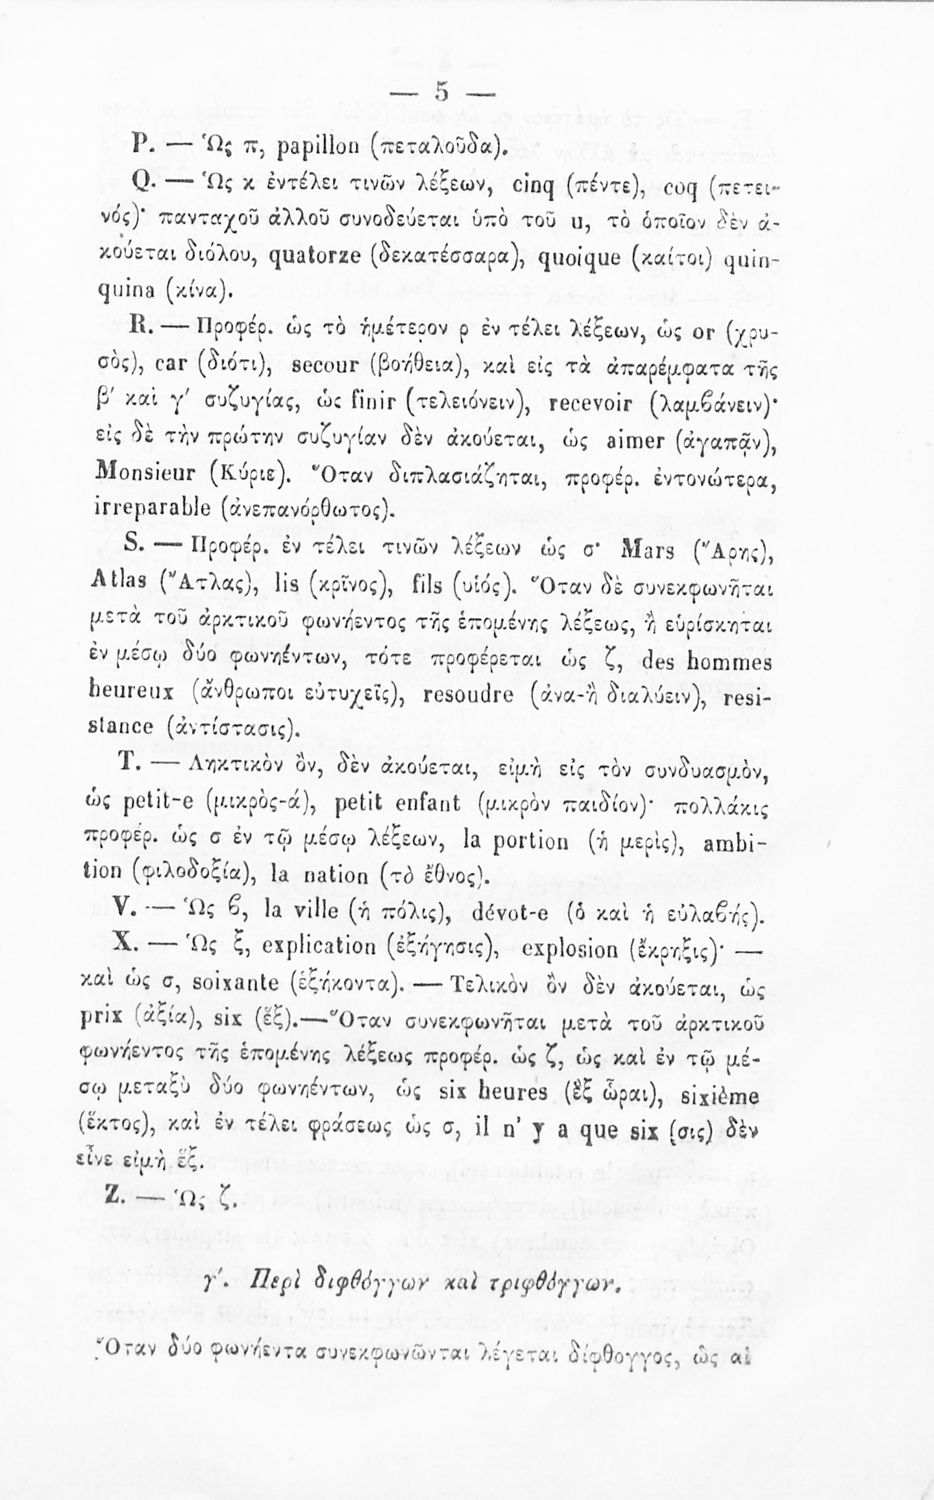 — 5 —
P. — Ὡς π, papillon (πεταλοῦδα).
Q. — Ὡς κ ἐντέλει τινῶν λέξεων, cinq (πέντε), coq (πετει-
νός)· πανταχοῦ ἀλλοῦ συνοδεύεται ὑπὸ τοῦ u, τὸ ὁποῖον δὲν ἀ-
κούεται διόλου, quatorze (δεκατέσσαρα), quoique (καίτοι) quin-
quina (κίνα).
R. — Προφέρ. ὡς τὸ ἡμέτερον ρ ἐν τέλει λέξεων, ὡς or (χρυ-
σὸς), car (διότι), secour (βοήθεια), καὶ εἰς τὰ ἀπαρέμφατα τῆς
β′ καὶ γ′ συζυγίας, ὡς finir (τελειόνειν), recevoir (λαμϐάνειν)·
εἰς δὲ τὴν πρώτην συζυγίαν δὲν ἀκούεται, ὡς aimer (ἀγαπᾷν),
Monsieur (Κύριε). Ὅταν διπλασιάζηται, προφέρ. ἐντονώτερα,
irreparable (ἀνεπανόρθωτος).
S. — Προφέρ. ἐν τέλει τινῶν λέξεων ὡς σ· Mars (Ἄρης),
Atlas (Ἄτλας), lis (κρῖνος), fils (υἱός). Ὅταν δὲ συνεκφωνῆται
μετὰ τοῦ ἀρκτικοῦ φωνήεντος τῆς ἑπομένης λέξεως, ἢ εὑρίσκηται
ἐν μέσῳ δύο φωνηέντων, τότε προφέρεται ὡς ζ, des hommes
heureux (ἄνθρωποι εὐτυχεῖς), resoudre (ἀνα-ἢ διαλύειν), resi-
stance (ἀντίστασις).
T. — Ληκτικὸν ὂν, δὲν ἀκούεται, εἰμὴ εἰς τὸν συνδυασμὸν,
ὡς petit-e (μικρὸς-ά), petit enfant (μικρὸν παιδίον)· πολλάκις
προφέρ. ὡς σ ἐν τῷ μέσῳ λέξεων, la portion (ἡ μερὶς), ambi-
tion (φιλοδοξία), la nation (τὸ ἔθνος).
V. — Ὡς ϐ, la ville (ἡ πόλις), dévot-e (ὁ καὶ ἡ εὐλαϐής).
X. — Ὡς ξ, explication (ἐξήγησις), explosion (ἔκρηξις)· —
καὶ ὡς σ, soixante (ἑξήκοντα). — Τελικὸν ὂν δὲν ἀκούεται, ὡς
prix (ἀξία), six (ἕξ).—Ὅταν συνεκφωνῆται μετὰ τοῦ ἀρκτικοῦ
φωνήεντος τῆς ἑπομένης λέξεως προφέρ. ὡς ζ, ὡς καὶ ἐν τῷ μέ-
σῳ μεταξὺ δύο φωνηέντων, ὡς six heures (ἓξ ὧραι), sixième
(ἕκτος), καὶ ἐν τέλει φράσεως ὡς σ, il n’ y a que six (σις) δὲν
εἶνε εἰμὴ ἕξ.
Z. — Ὡς ζ.
γ′. Περὶ διφθόγγων καὶ τριφθόγγων.
Ὅταν δύο φωνήεντα συνεκφωνῶνται λέγεται δίφθογγος, ὡς αi